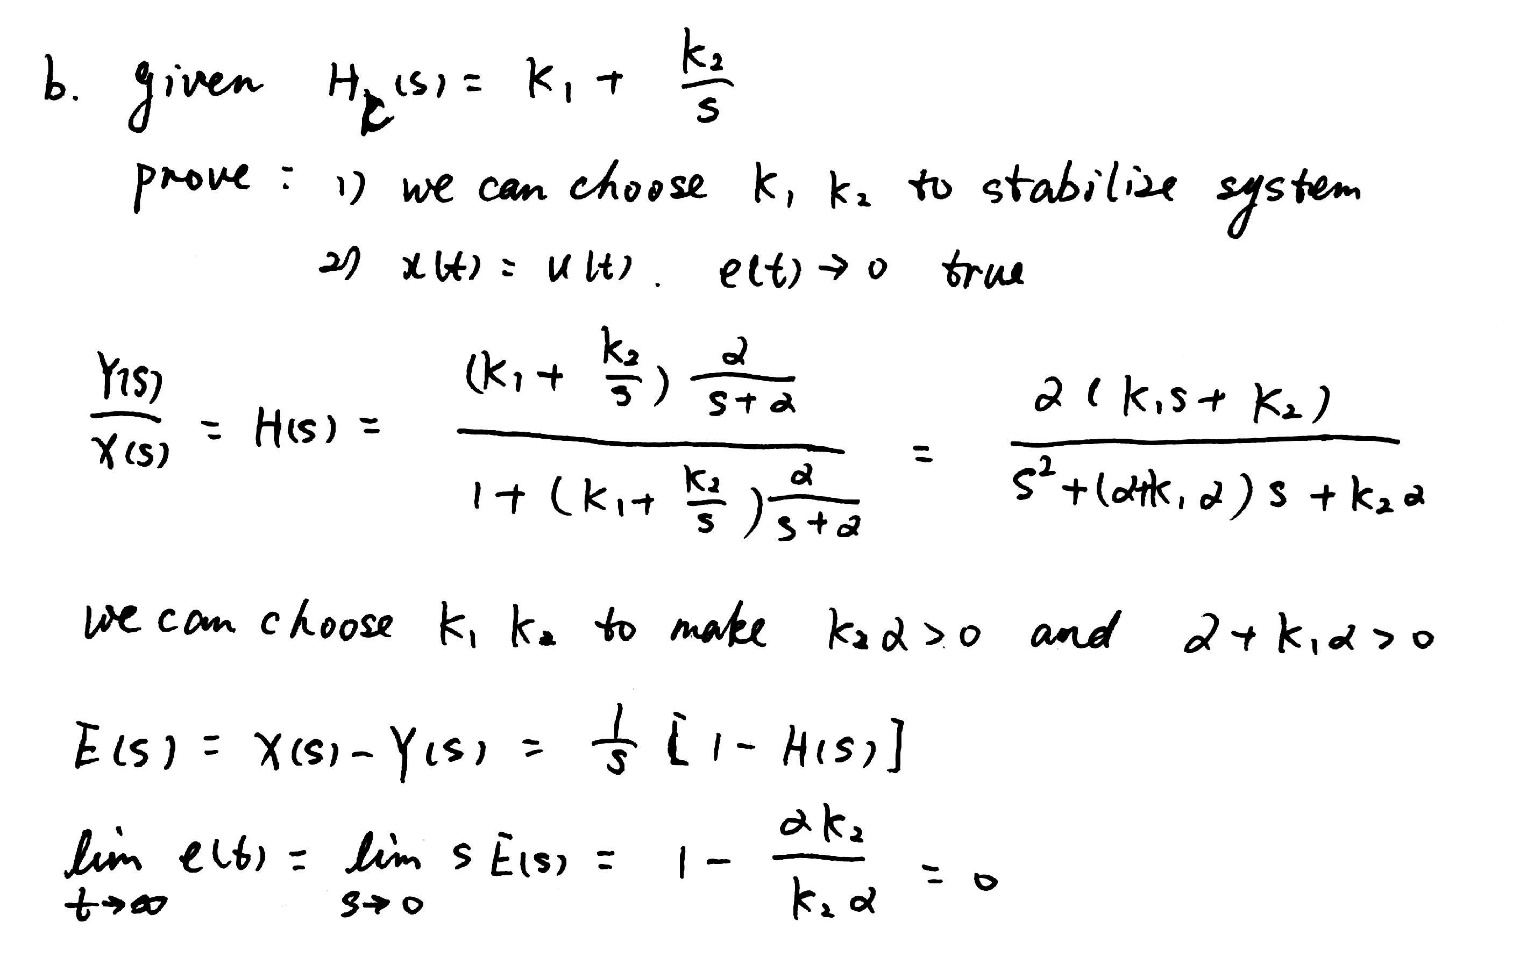 b. given H_c(s) = K₁ + K₂/s
prove : 1) we can choose K₁ K₂ to stabilize system
2) x(t) = u(t). e(t) → 0 true
Y(s)/X(s) = H(s) = ((K₁ + K₂/s) α/(s+α)) / (1 + (K₁ + K₂/s) α/(s+α)) = α(K₁s + K₂) / (s² + (α+K₁α)s + K₂α)
we can choose K₁ K₂ to make K₂α > 0 and α + K₁α > 0
E(s) = X(s) - Y(s) = 1/s [1 - H(s)]
lim_{t→∞} e(t) = lim_{s→0} s E(s) = 1 - αK₂/K₂α = 0